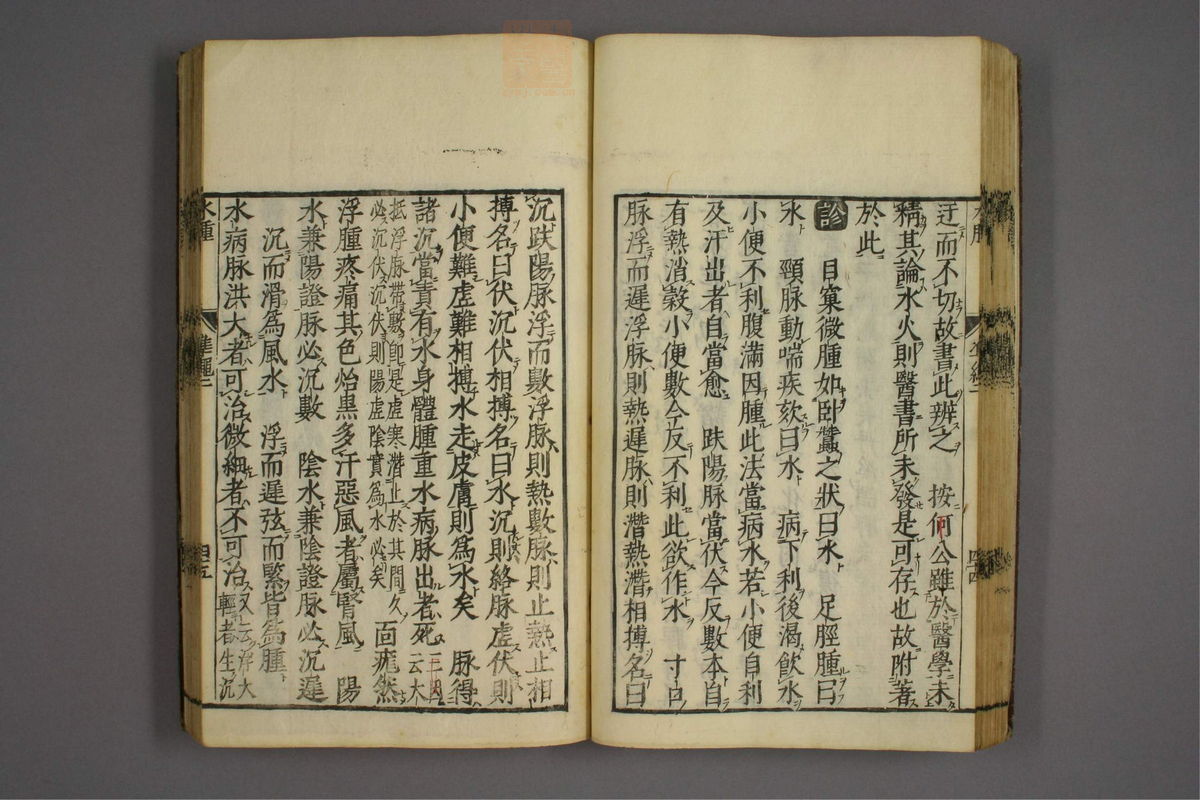 迂而不切故書此辨之　按何公雖於醫學未
精其論水火則醫書所未發是可存也故附著
於此
診　目窠微腫如臥蠶之狀曰水　足脛腫曰
水　頸脉動喘疾欬曰水　病下利後渴飲水
小便不利腹滿因腫此法當病水若小便自利
及汗出者自當愈　趺陽脉當伏今反數本自
有熱消穀小便數今反不利此欲作水　寸口
脉浮而遲浮脉則熱遲脉則潛熱潛相搏名曰
沉趺陽脉浮而數浮脉則熱數脉則止熱止相
搏名曰伏沉伏相搏名曰水沉則絡脉虛伏則
小便難虛難相搏水走皮膚則爲水矣　脉得
諸沉當責有水身體腫重水病脉出者死
云大
抵浮脉帶數即是虛寒潛止於其間久
必沉伏沉伏則陽虛陰實爲水必矣
面㿔然
浮腫疼痛其色炲黒多汗惡風者屬腎風　陽
水兼陽證脉必沉數　陰水兼陰證脉必沉遲
沉而滑爲風水　浮而遲弦而緊皆爲腫
水病脉洪大者可治微細者不可治
又云浮大
輕者生沉
水腫
準繩二
四五